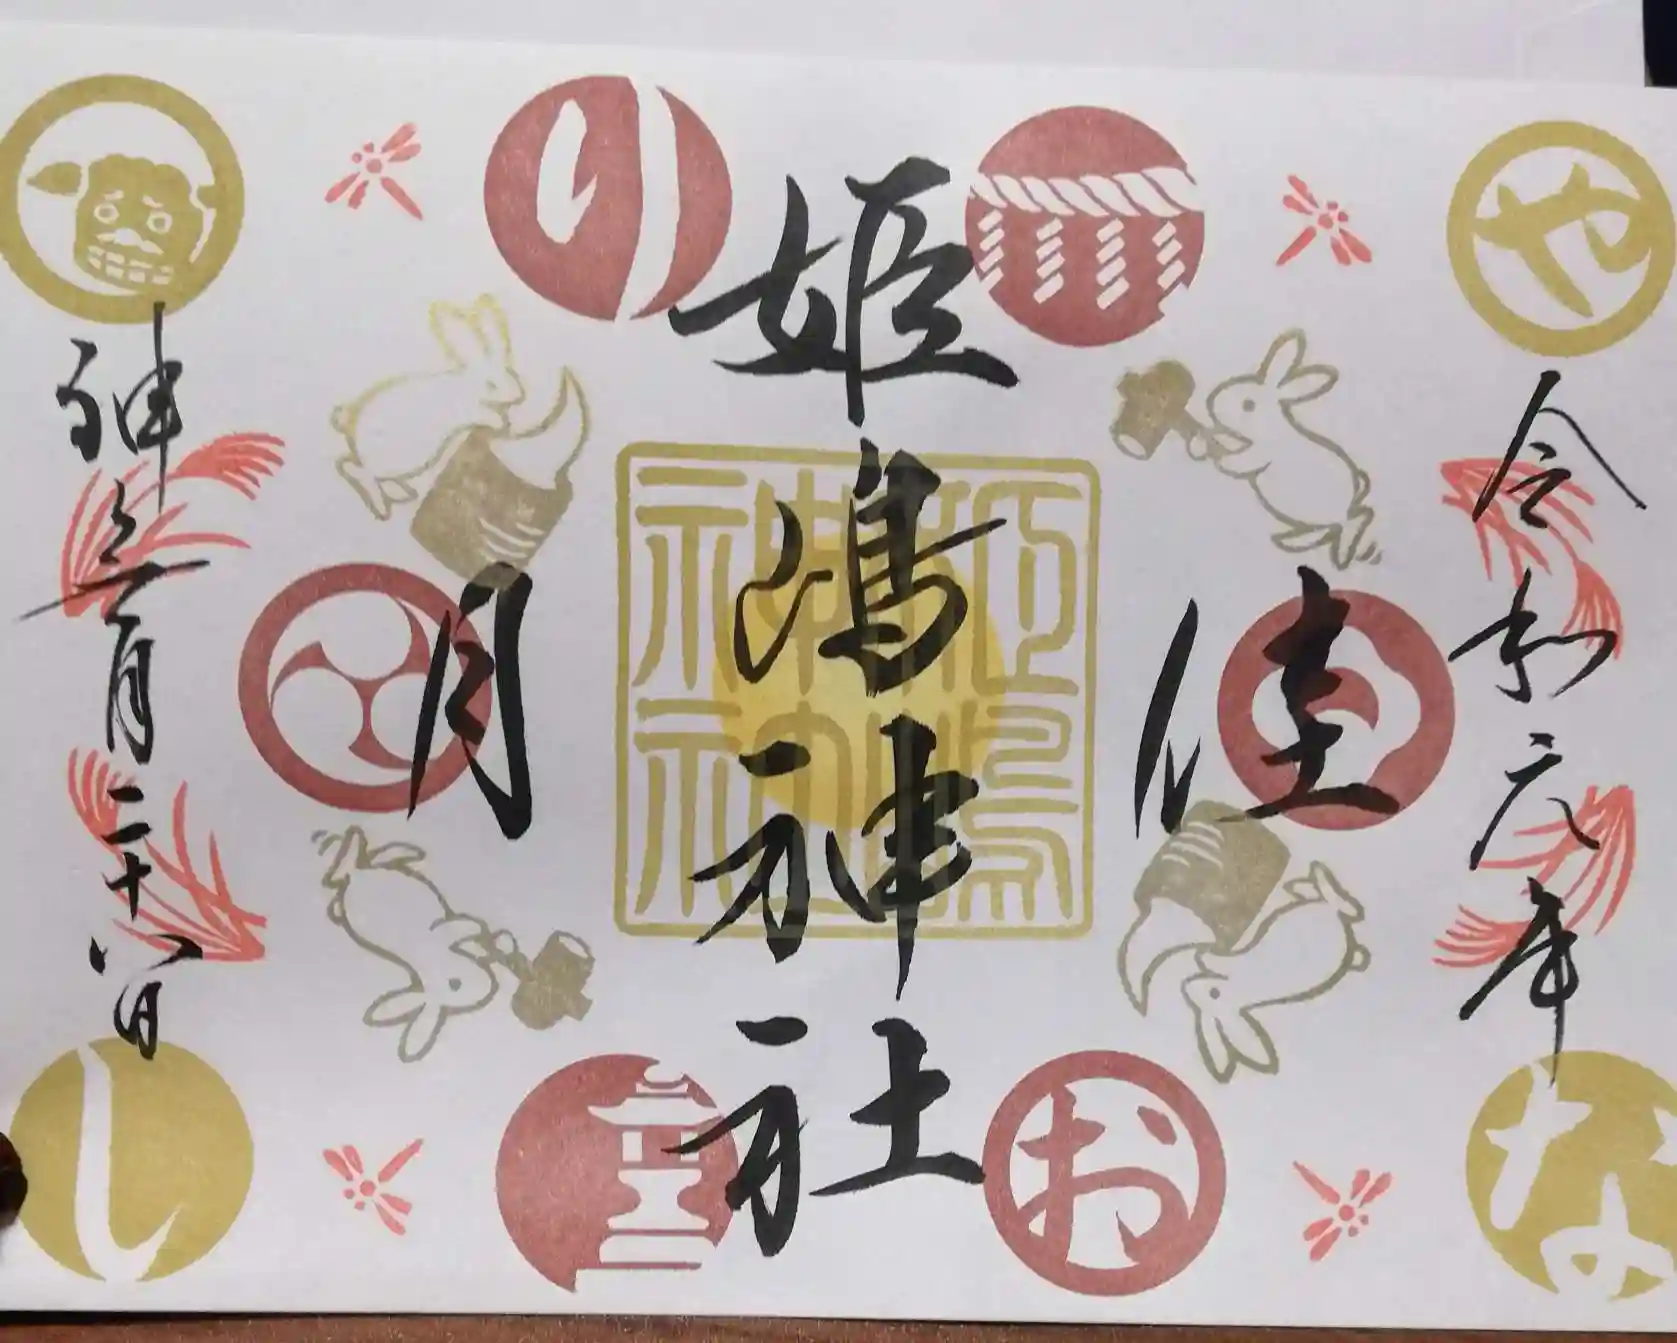 や
り
な
お
し
令和元年
佳月
姫嶋神社
姫嶋神社
神無月二十八日